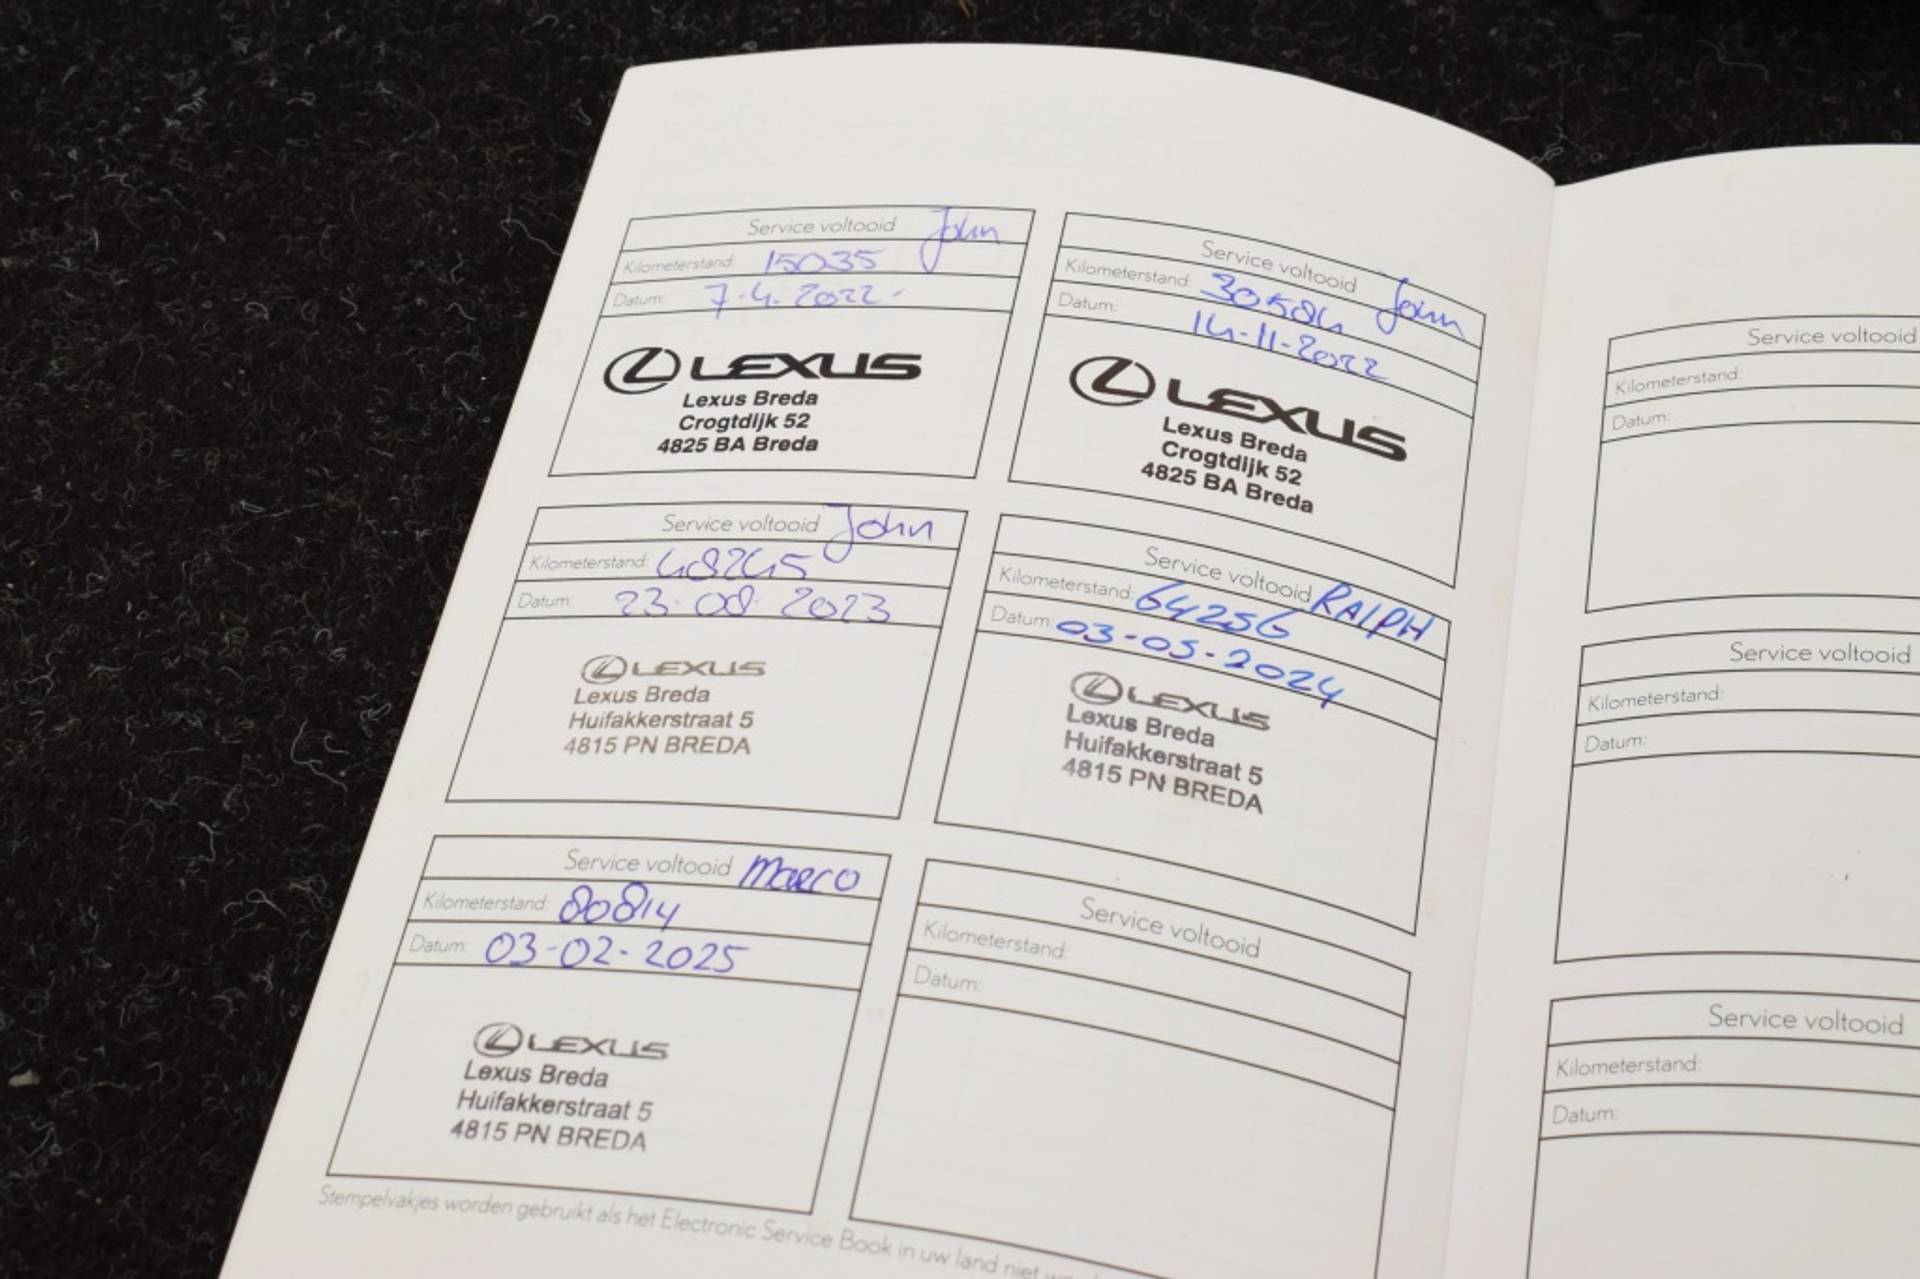 Service voltooid John
Kilometerstand: 15035
Datum: 7-4-2022-
LEXUS
Lexus Breda
Crogtdijk 52
4825 BA Breda
Service voltooid John
Kilometerstand: 30584
Datum: 14-11-2022
LEXUS
Lexus Breda
Crogtdijk 52
4825 BA Breda
Service voltooid John
Kilometerstand: 48245
Datum: 23-08-2023
LEXUS
Lexus Breda
Huifakkerstraat 5
4815 PN BREDA
Service voltooid RALPH
Kilometerstand: 64256
Datum: 03-05-2024
LEXUS
Lexus Breda
Huifakkerstraat 5
4815 PN BREDA
Service voltooid Marco
Kilometerstand: 80814
Datum: 03-02-2025
LEXUS
Lexus Breda
Huifakkerstraat 5
4815 PN BREDA
Service voltooid
Kilometerstand:
Datum:
Stempelvakjes worden gebruikt als het Electronic Service Book in uw land niet
Service voltooid
Kilometerstand:
Datum:
Service voltooid
Kilometerstand:
Datum:
Service voltooid
Kilometerstand:
Datum: